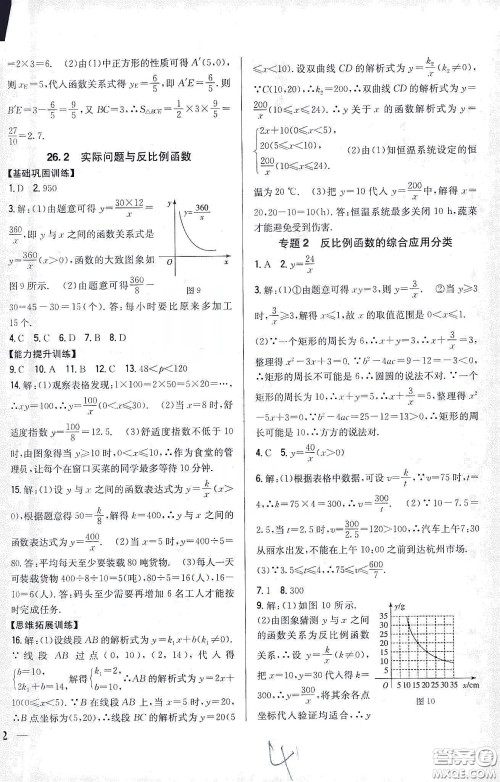 =2×3=6. (2)由(1)中正方形的性质可得 A′(5,0),
则 x_E=5,代入函数关系式得 y_E=6/5,即 A′E=6/5,则
B′E=3-6/5=9/5,又∵BC=3,∴S△A′BE=1/2×3×9/5=
27/10=2.7.
26.2 实际问题与反比例函数
【基础巩固训练】
1.D 2.950
3.解:(1)由题意可得 y=30×12/x=
360/x,即 y 与 x 之间的函数关系式是
y=360/x(x>0),函数的大致图象如
图 9 所示.(2)由题意可得 360/8-
30=45-30=15(个).答:每小时要比原来多加工
15 个.
y
y=360/x
O
x
图 9
4.C 5.C 6.D 7.B 8.D
【能力提升训练】
9.C 10.A 11.B 12.C 13.48<p<120
14.解:(1)观察表格发现:1×100=2×50=5×20=…,
∴xy=100,∴y=100/x(0<x≤30). (2)当 x=8 时,舒
适度指数 y=100/8=12.5. (3)舒适度指数不低于 10
时,由图象得当 y≥10 时,0<x≤10,∴作为食堂的管
理员,让每个在窗口买菜的同学最多等待 10 分钟.
15.解:(1)设 y 与 x 之间的函数表达式为 y=k/x(k>
0),根据题意得 50=k/8,解得 k=400,∴y 与 x 之间
的函数表达式为 y=400/x. (2)当 x=5 时,y=400÷5=
80.答:平均每天至少要装载 80 吨货物. (3)每人一天
可装载货物 400÷8÷10=5(吨),∴400÷5÷5-
10=6(人).答:码头至少需要再增加 6 名工人才能按
时完成任务.
【思维拓展训练】
16.解:(1)设线段 AB 的解析式为 y=k₁x+b(k₁≠0),
∵线段 AB 过点 (0,10),(2,14),代入得
{b=10, 2k₁+b=14, 解得{k₁=2, b=10. ∴AB 的解析式为 y=2x+
10(0≤x<5). ∵B 在线段 AB 上当 x=5 时,y=20,
∴B 点坐标为(5,20),∴线段 BC 的解析式为 y=20(5
≤x<10).设双曲线 CD 的解析式为 y=k₂/x(k₂≠0),
∵C(10,20),∴k₂=200,∴双曲线 CD 的解析式为 y=
200/x(10≤x≤24). ∴y 关于 x 的函数解析式为 y=
{2x+10(0≤x<5), 20(5≤x<10), 200/x(10≤x≤24). (2)由(1)知恒温系统设定的恒
温为 20 ℃. (3)把 y=10 代入 y=200/x 中,解得 x=
20,20-10=10.答:恒温系统最多关闭 10 h,蔬菜
才能避免受到伤害.
专题 2 反比例函数的综合应用分类
1.A 2.y=24/x
3.解:(1)①由题意可得 xy=3,则 y=3/x. ②当 y≥3
时,3/x≥3,解得 x≤1,故 x 的取值范围是 0<x≤1.
(2)∵一个矩形的周长为 6,∴x+y=3,∴x+3/x=3,
整理得 x²-3x+3=0,∵b²-4ac=9-12=-3<0,
∴矩形的周长不可能是 6,∴圆圆的说法不对. ∵一
个矩形的周长为 10,∴x+y=5,∴x+3/x=5,整理得 x²
-5x+3=0,∵b²-4ac=25-12=13>0,∴矩形的周
长可能是 10,∴方方的说法对.
4.C 5.y=40/x(x>0)
6.解:(1)根据表格中数据,可设 v=k/t,∵v=75 时,t
=4,∴k=75×4=300,∴v=300/t. (2)∵10-7.5=
2.5,当 t=2.5 时,v=300/2.5=120,∴汽车上午 7:30
从丽水出发,不能在上午 10:00 之前到达杭州市场.
(3)∵3.5≤t≤4,∴75≤v≤600/7.
7.1 8.300
9.解:(1)如图 10 所示.
(2)由图象猜测 y 与 x
的函数关系为反比例函数
关系. ∴设 y=k/x(k≠0),
∴y=300/x,将其余各点
坐标代入验证均适合,∴
y/g
5 10 15 20 25 30 35
x/cm
图 10
2